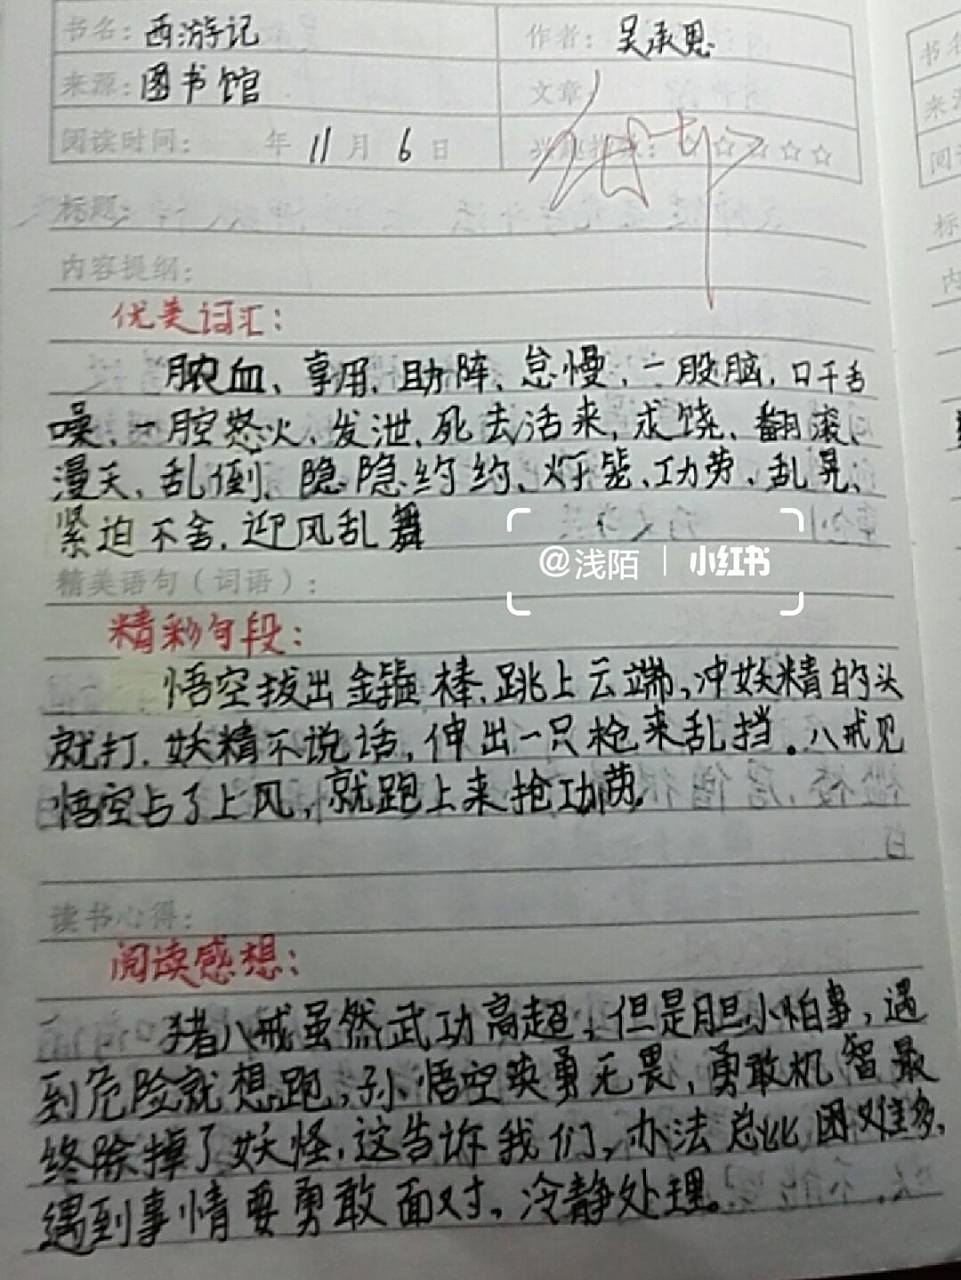 书名：西游记 作者：吴承恩
来源：图书馆 文章
阅读时间： 年 11 月 6 日 ☆☆☆☆
标题：
内容提纲：
优美词汇：
脓血、享用、助阵、怠慢、一股脑、口干舌
噪、一腔怒火、发泄、死去活来、求饶、翻滚、
漫天、乱倒、隐隐约约、功劳、乱晃、
紧迫不舍、迎风乱舞
@浅陌 | 小红书
精美语句（词语）：
精彩句段：
悟空拔出金箍棒，跳上云端，冲妖精的头
就打，妖精不说话，伸出一只枪来乱挡。八戒见
悟空占了上风，就跑上来抢功劳
读书心得：
阅读感想：
猪八戒虽然武功高超，但是胆小怕事，遇
到危险就想跑，孙悟空英勇无畏，勇敢机智最
终除掉了妖怪，这告诉我们，办法总比困难多，
遇到事情要勇敢面对，冷静处理。
书名
来源
阅
标
内